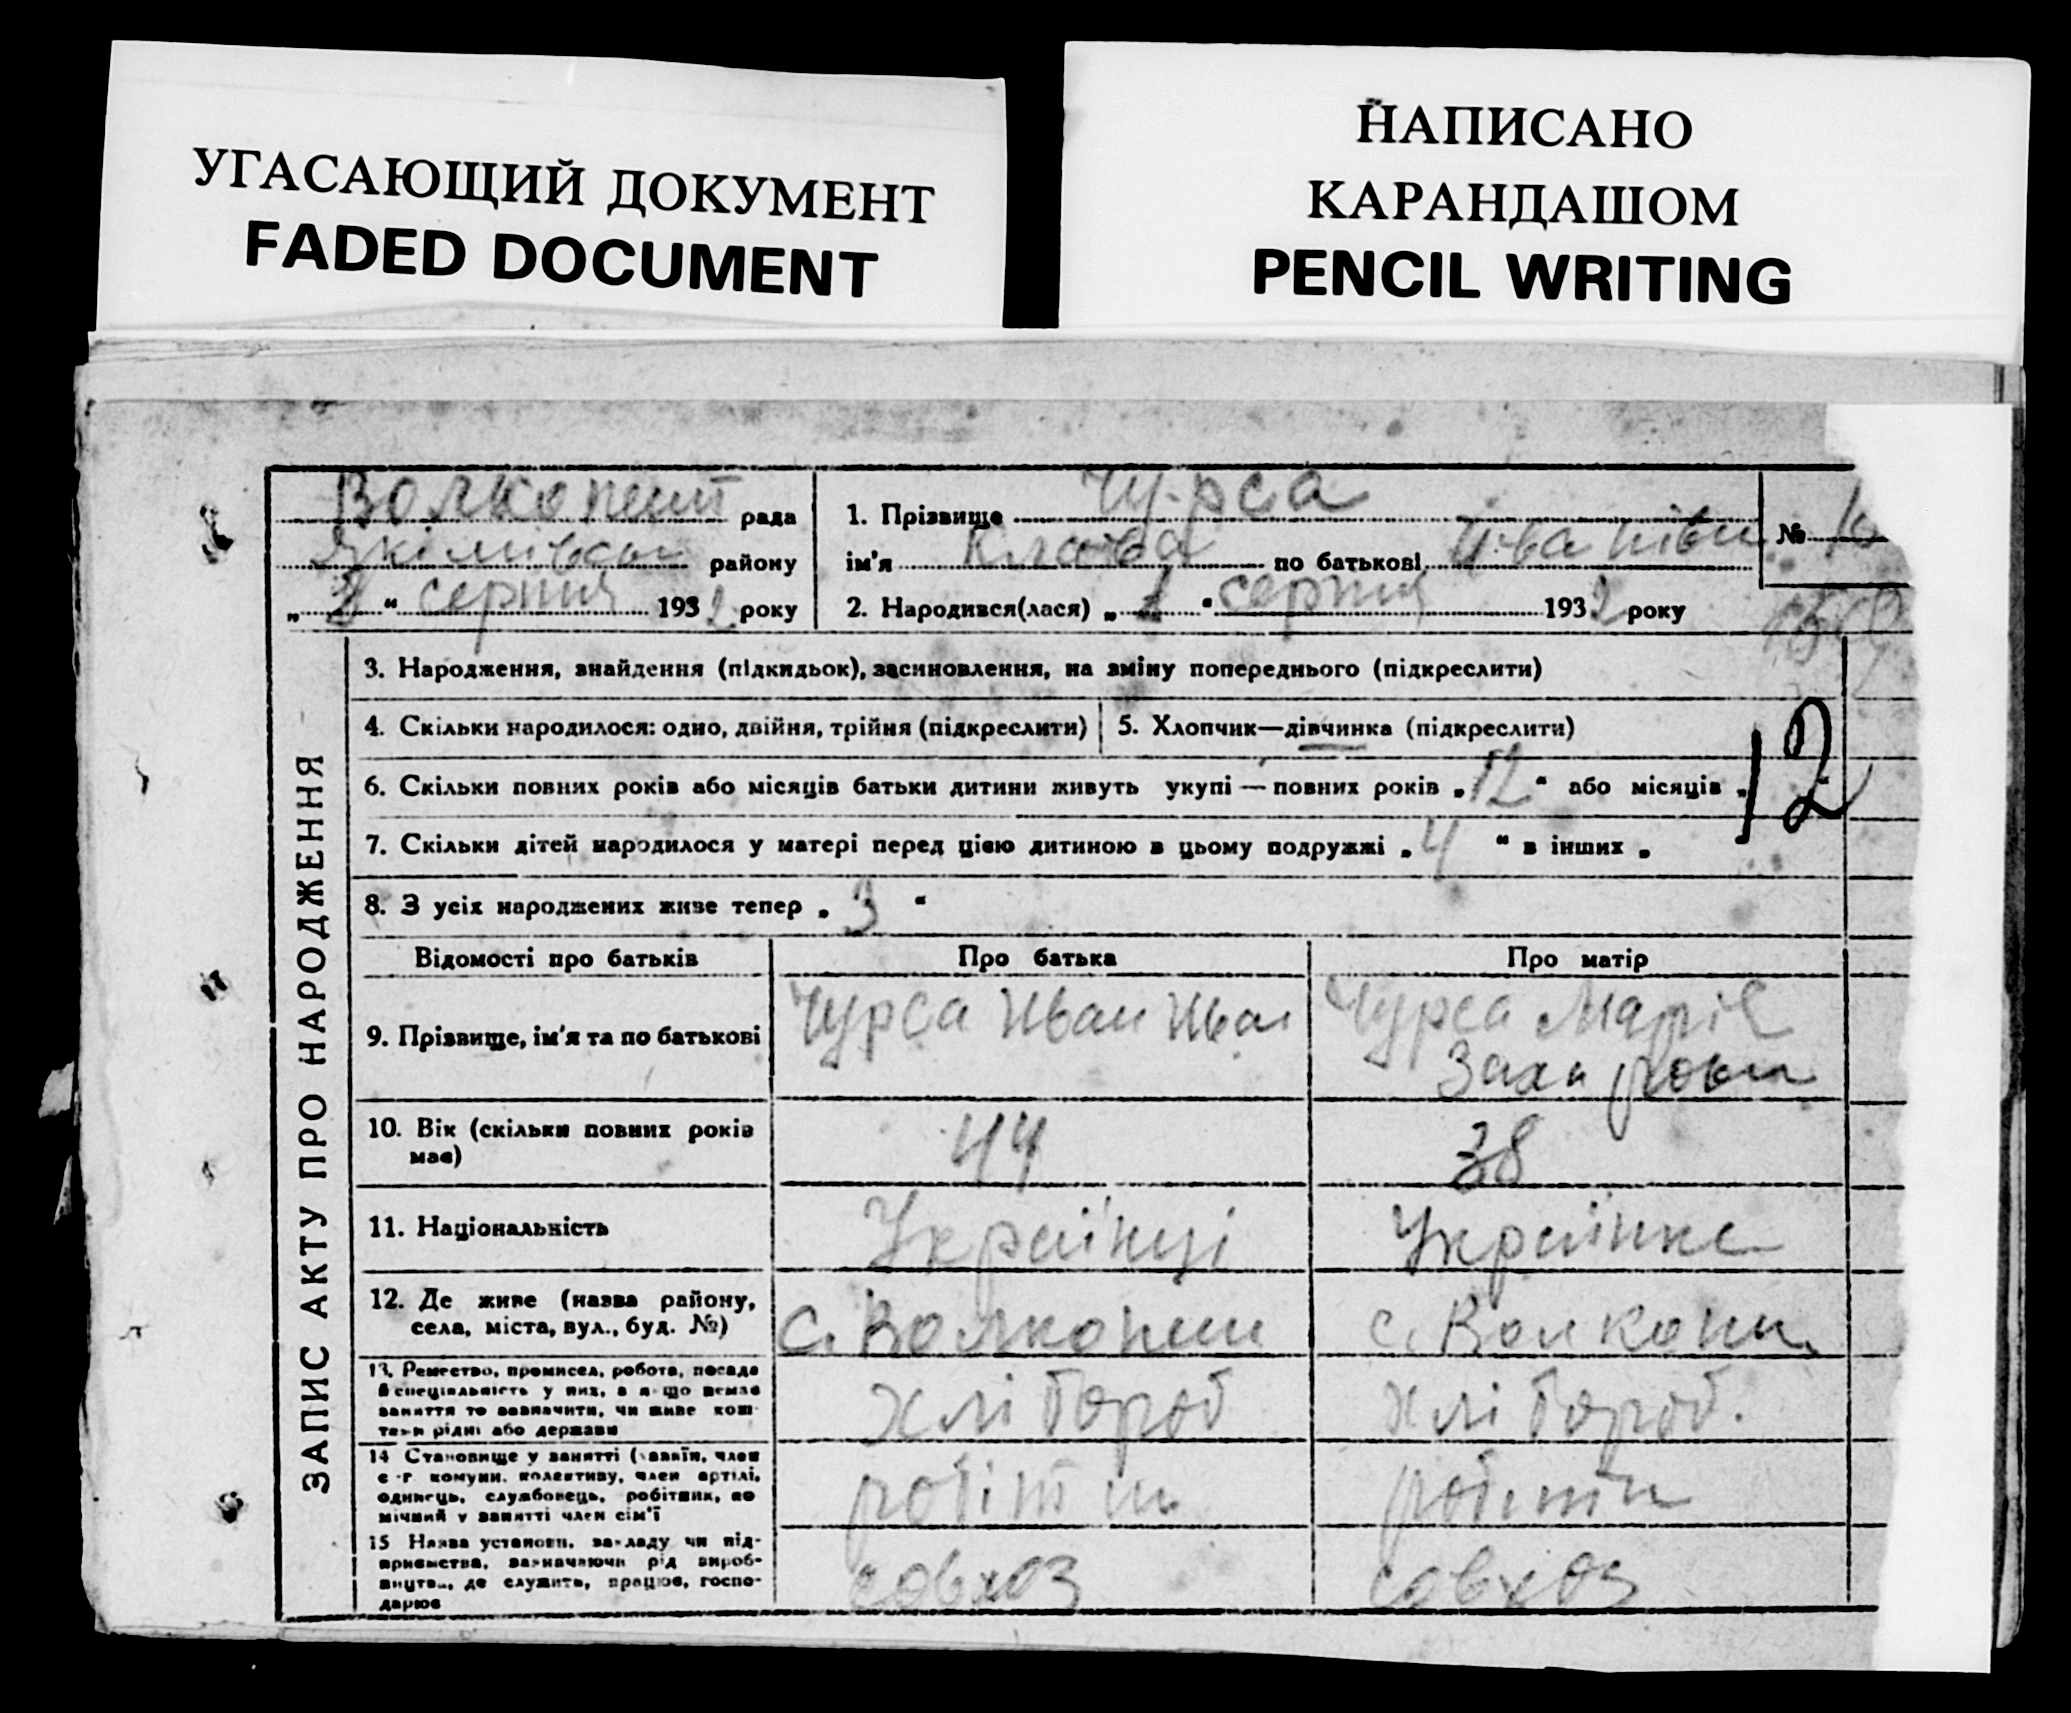 УГАСАЮЩИЙ ДОКУМЕНТ
FADED DOCUMENT
НАПИСАНО
КАРАНДАШОМ
PENCIL WRITING
Волкопеш рада
Якімівськ району
„ 2 “ серпня 1932 року
1. Прізвище Чурса
ім'я Клава по батькові Іванівн
2. Народився(лася) „ 1 “ серпня 1932 року
№
ЗАПИС АКТУ ПРО НАРОДЖЕННЯ
3. Народження, знайдення (підкидьок), засиновлення, на зміну попереднього (підкреслити)
4. Скільки народилося: одно, двійня, трійня (підкреслити)
5. Хлопчик—дівчинка (підкреслити)
6. Скільки повних років або місяців батьки дитини живуть укупі — повних років „ 12 “ або місяців „
12
7. Скільки дітей народилося у матері перед цією дитиною в цьому подружжі „ 4 “ в інших „
8. З усіх народжених живе тепер „ 3 “
Відомості про батьків
Про батька
Про матір
9. Прізвище, ім'я та по батькові
Чурса Иван Иван
Чурса Маріє
Захарови
10. Вік (скільки повних років
має)
44
38
11. Національність
Українці
Українка
12. Де живе (назва району,
села, міста, вул., буд. №)
с. Волкопеш
с. Волкопи
13. Ремество, промисел, робота, посада
й спеціяльність у них, а якщо немає
заняття то зазначити, чи живе кош-
тами рідні або держави
хлібороб
хлібороб.
14 Становище у занятті (хазяїн, член
с.-г. комуни, колективу, член артілі,
одинець, службовець, робітник, по
мічний у занятті член сім'ї
робітн
робітн
15 Назва установи, закладу чи під-
приємства, зазначаючи рід вироб-
ництва, де служить, працює, госпо-
дарює
совхоз
совхоз